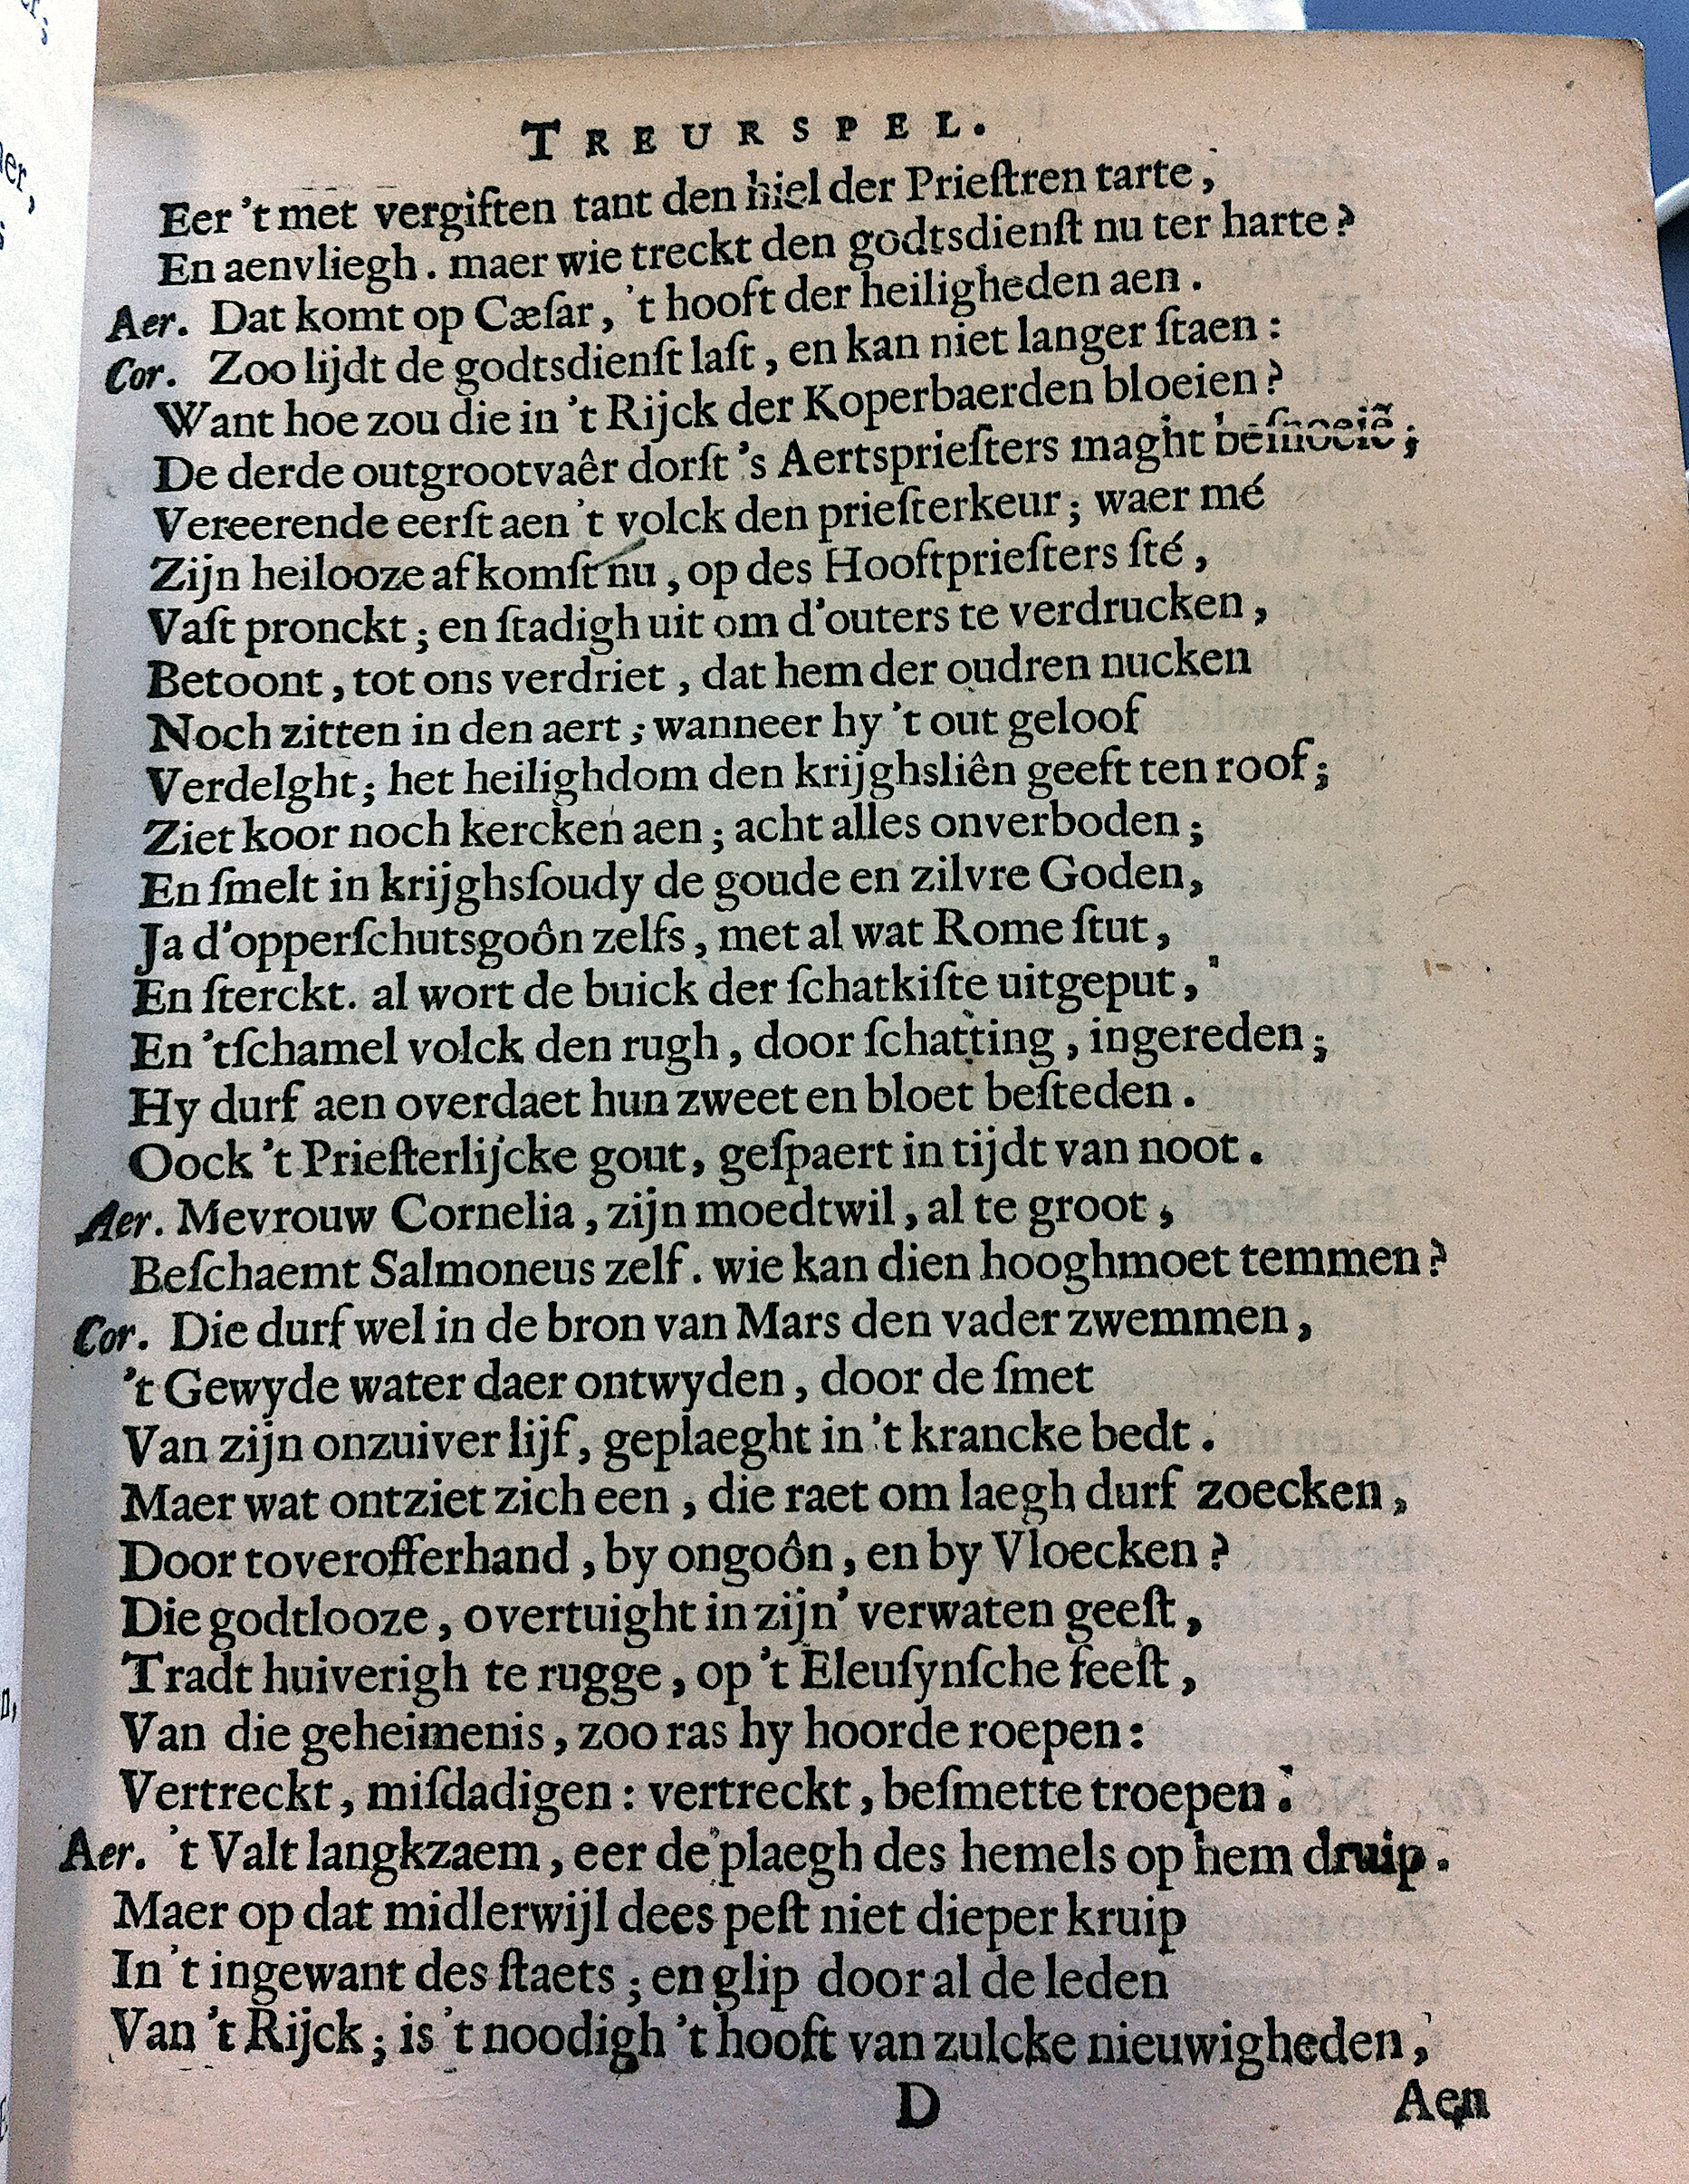 TREURSPEL.
Eer 't met vergiften tant den hiel der Prieſtren tarte,
En aenvliegh. maer wie treckt den godtsdienſt nu ter harte?
Aer. Dat komt op Cæſar, 't hooft der heiligheden aen.
Cor. Zoo lijdt de godtsdienſt laſt, en kan niet langer ſtaen:
Want hoe zou die in 't Rijck der Koperbaerden bloeien?
De derde outgrootvaêr dorſt 's Aertsprieſters maght beſnoeiẽ;
Vereerende eerſt aen 't volck den prieſterkeur; waer mé
Zijn heilooze afkomſt nu, op des Hooftprieſters ſté,
Vaſt pronckt; en ſtadigh uit om d'outers te verdrucken,
Betoont, tot ons verdriet, dat hem der oudren nucken
Noch zitten in den aert; wanneer hy 't out geloof
Verdelght; het heilighdom den krijghsliên geeft ten roof;
Ziet koor noch kercken aen; acht alles onverboden;
En ſmelt in krijghsſoudy de goude en zilvre Goden,
Ja d'opperſchutsgoôn zelfs, met al wat Rome ſtut,
En ſterckt. al wort de buick der ſchatkiſte uitgeput,
En 'tſchamel volck den rugh, door ſchatting, ingereden;
Hy durf aen overdaet hun zweet en bloet beſteden.
Oock 't Prieſterlijcke gout, geſpaert in tijdt van noot.
Aer. Mevrouw Cornelia, zijn moedtwil, al te groot,
Beſchaemt Salmoneus zelf. wie kan dien hooghmoet temmen?
Cor. Die durf wel in de bron van Mars den vader zwemmen,
't Gewyde water daer ontwyden, door de ſmet
Van zijn onzuiver lijf, geplaeght in 't krancke bedt.
Maer wat ontziet zich een, die raet om laegh durf zoecken,
Door toverofferhand, by ongoôn, en by Vloecken?
Die godtlooze, overtuight in zijn' verwaten geeſt,
Tradt huiverigh te rugge, op 't Eleuſynſche feeſt,
Van die geheimenis, zoo ras hy hoorde roepen:
Vertreckt, miſdadigen: vertreckt, beſmette troepen.
Aer. 't Valt langkzaem, eer de plaegh des hemels op hem druip.
Maer op dat midlerwijl dees peſt niet dieper kruip
In 't ingewant des ſtaets; en glip door al de leden
Van 't Rijck; is 't noodigh 't hooft van zulcke nieuwigheden,
D
Aen